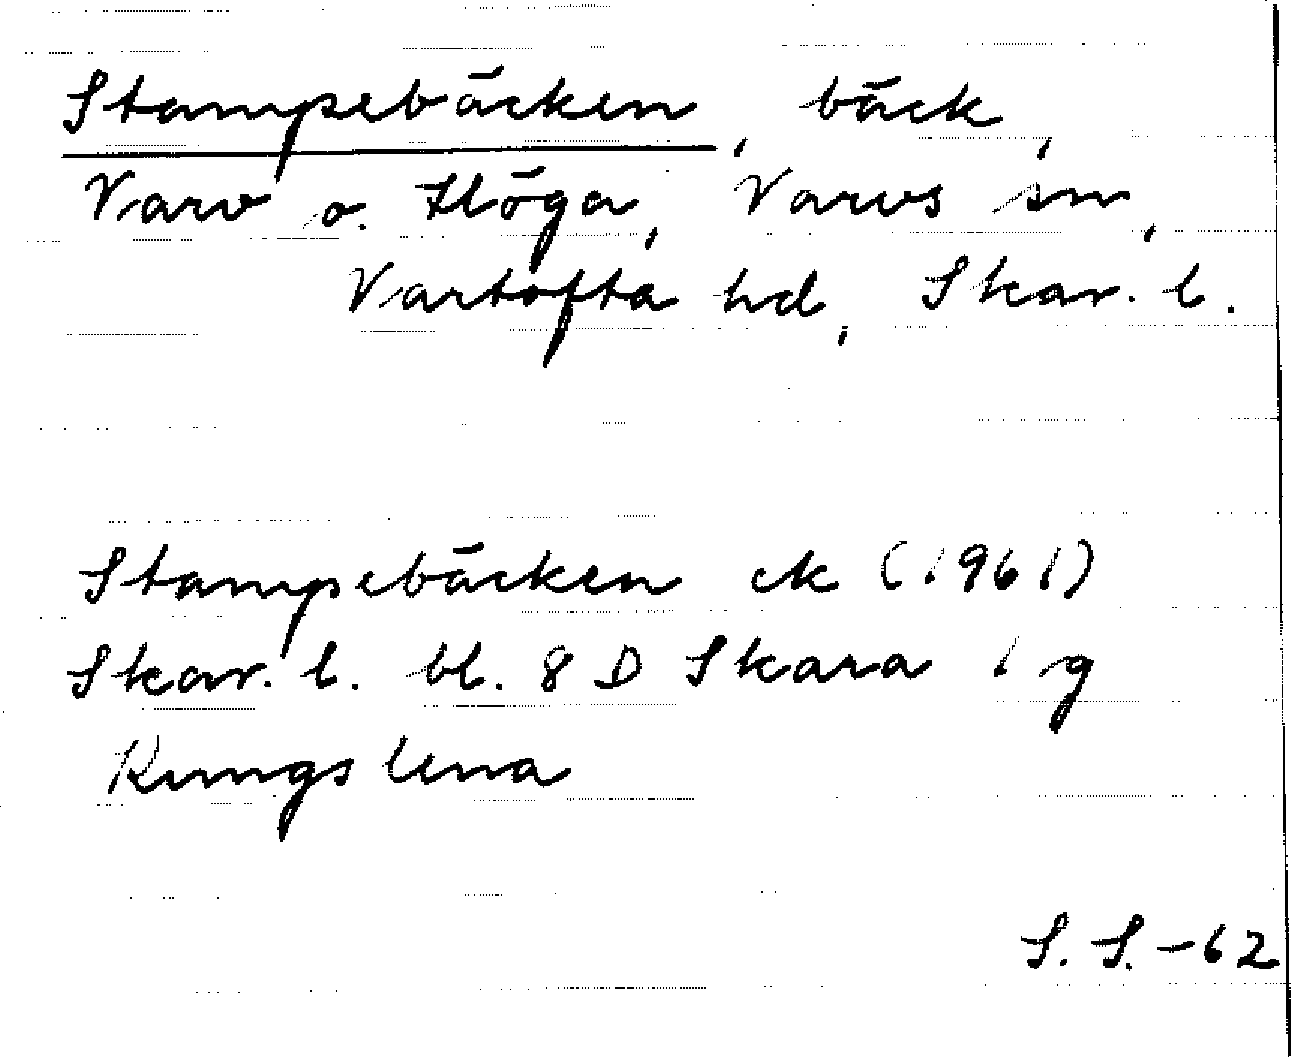 Stampebäcken, bäck,
Varv o. Höga, Varvs sn,
Vartofta hd, Skar. l.
Stampebäcken ek (1961)
Skar. l. bl. 8 D Skara 1 g
Kungslena
S. S. -62